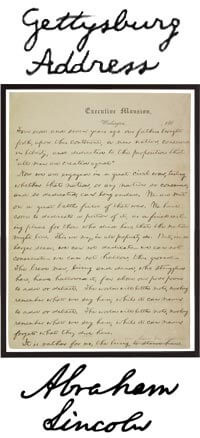 Gettysburg
Address
Executive Mansion,
Washington, 186
Four score and seven years ago our fathers brought
forth, upon this continent, a new nation, conceived
in liberty, and dedicated to the proposition that
"all men are created equal"
Now we are engaged in a great civil war, testing
whether that nation, or any nation so conceived,
and so dedicated, can long endure. We are met
on a great battle field of that war. We have
come to dedicate a portion of it, as a final rest-
ing place for those who died here, that the nation
might live. This we may, in all propriety do. But, in a
larger sense, we can not dedicate we can not
consecrate we can not hallow, this ground
The brave men, living and dead, who struggled
here, have hallowed it, far above our poor power
to add or detract. The world will little note, nor long
remember what we say here; while it can never
to add or detract. The world will little note, nor long
remember what we say here; while it can never
forget what they did here.
It is rather for us, the living, to stand here,
Abraham
Lincoln